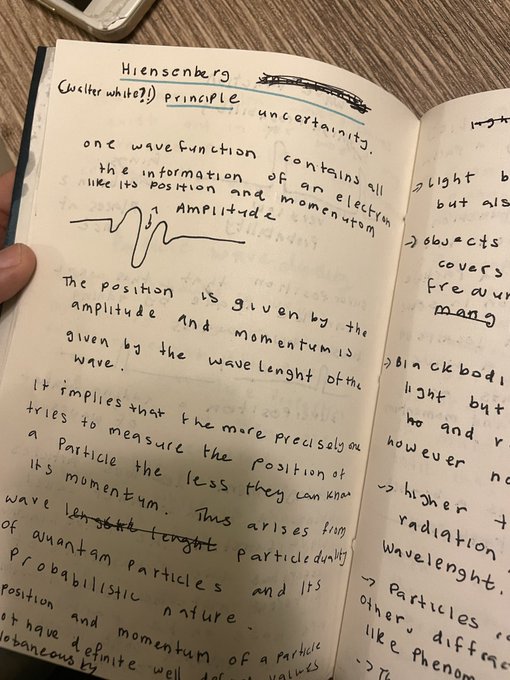 Hiensenberg
(walter white?!) principle uncertainity.
one wavefunction contains all
the information of an electron
like its position and momenutom
Amplitude
The position is given by the
amplitude and momentum is
given by the wave lenght of the
wave.
It implies that the more precisely one
tries to measure the position of
a particle the less they can know
its momentum. This arises from
wave lenght particle duality
of quantam particles and its
probabilistic nature.
position and momentum of a particle
ot have definite well values
by
→ Light b
but als
→ objects
covers
mang
→ Black bodi
light but
ho and r
however no
→ higher t
radiation
wavelenght.
→ Particles
other diffrac
like phenom
→